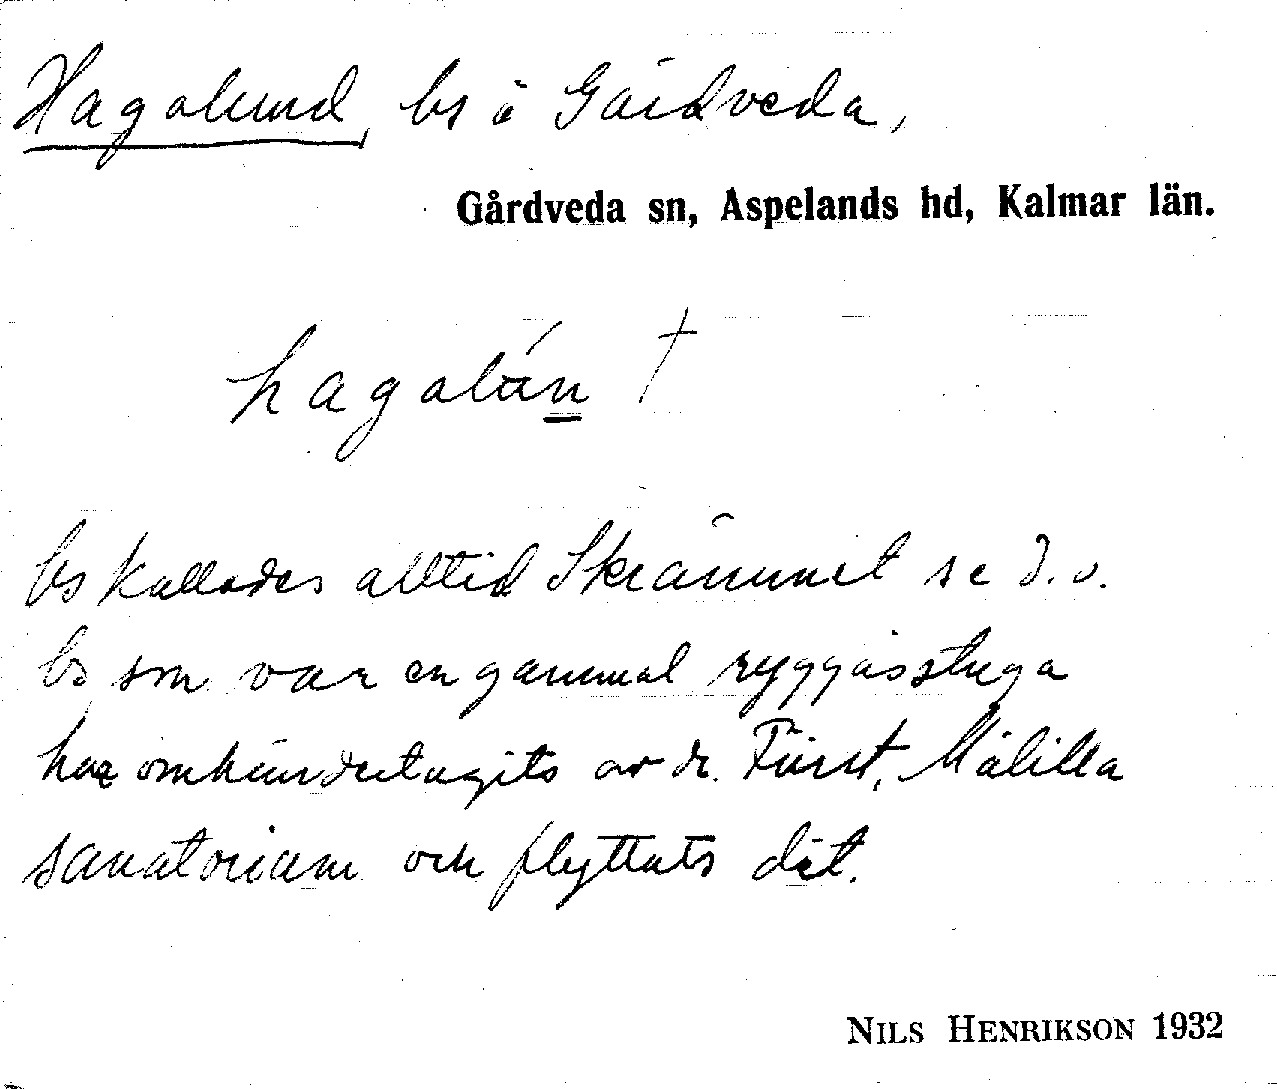 Hagalund, bs å Gårdveda,
Gårdveda sn, Aspelands hd, Kalmar län.
hagalún †
bs kallades alltid Skrämmet se d. o.
bs som var en gammal ryggåsstuga
har omhändertagits av dr. Fürst, Målilla
sanatorium och flyttats dit.
NILS HENRIKSON 1932